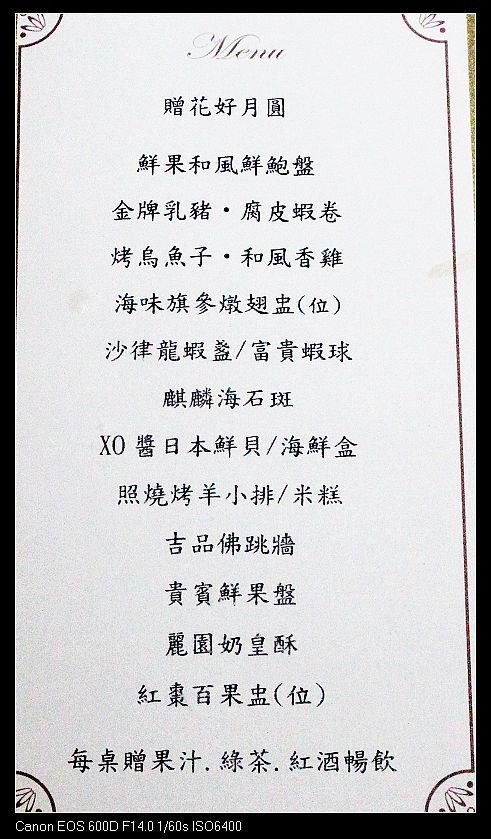 Menu
贈花好月圓
鮮果和風鮮鮑盤
金牌乳豬·腐皮蝦卷
烤烏魚子·和風香雞
海味旗參燉翅盅(位)
沙律龍蝦盞/富貴蝦球
麒麟海石斑
XO醬日本鮮貝/海鮮盒
照燒烤羊小排/米糕
吉品佛跳牆
貴賓鮮果盤
麗園奶皇酥
紅棗百果盅(位)
每桌贈果汁.綠茶.紅酒暢飲
Canon EOS 600D F14.0 1/60s ISO6400